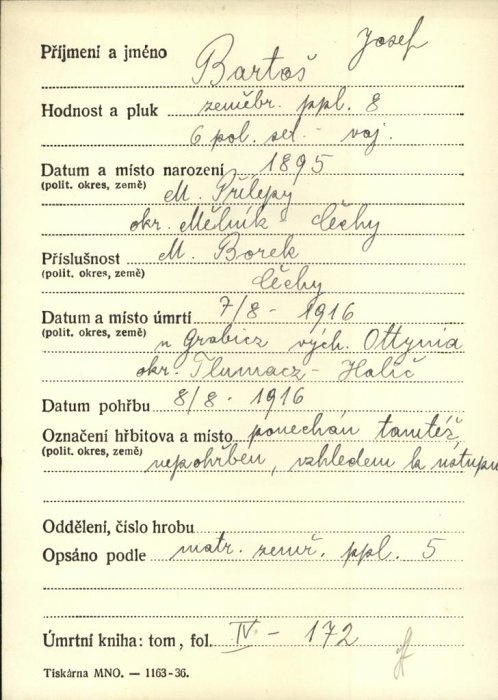 Příjmení a jméno Bartoš Josef
Hodnost a pluk zeměbr. ppl. 8
6 pol. set. - voj.
Datum a místo narození 1895
(polit. okres, země) M. Přílepy
okr. Mělník Čechy
Příslušnost M. Borek
(polit. okres, země) Čechy
Datum a místo úmrtí 7/8 - 1916
(polit. okres, země) u Grabicz vých. Ottynia
okr. Tlumacz - Halič
Datum pohřbu 8/8 - 1916
Označení hřbitova a místo ponechán tamtéž,
(polit. okres, země) nepohřben, vzhledem k ústupu
Oddělení, číslo hrobu
Opsáno podle matr. zemř. ppl. 5
Úmrtní kniha: tom, fol. IV - 172
Tiskárna MNO. — 1163-36.